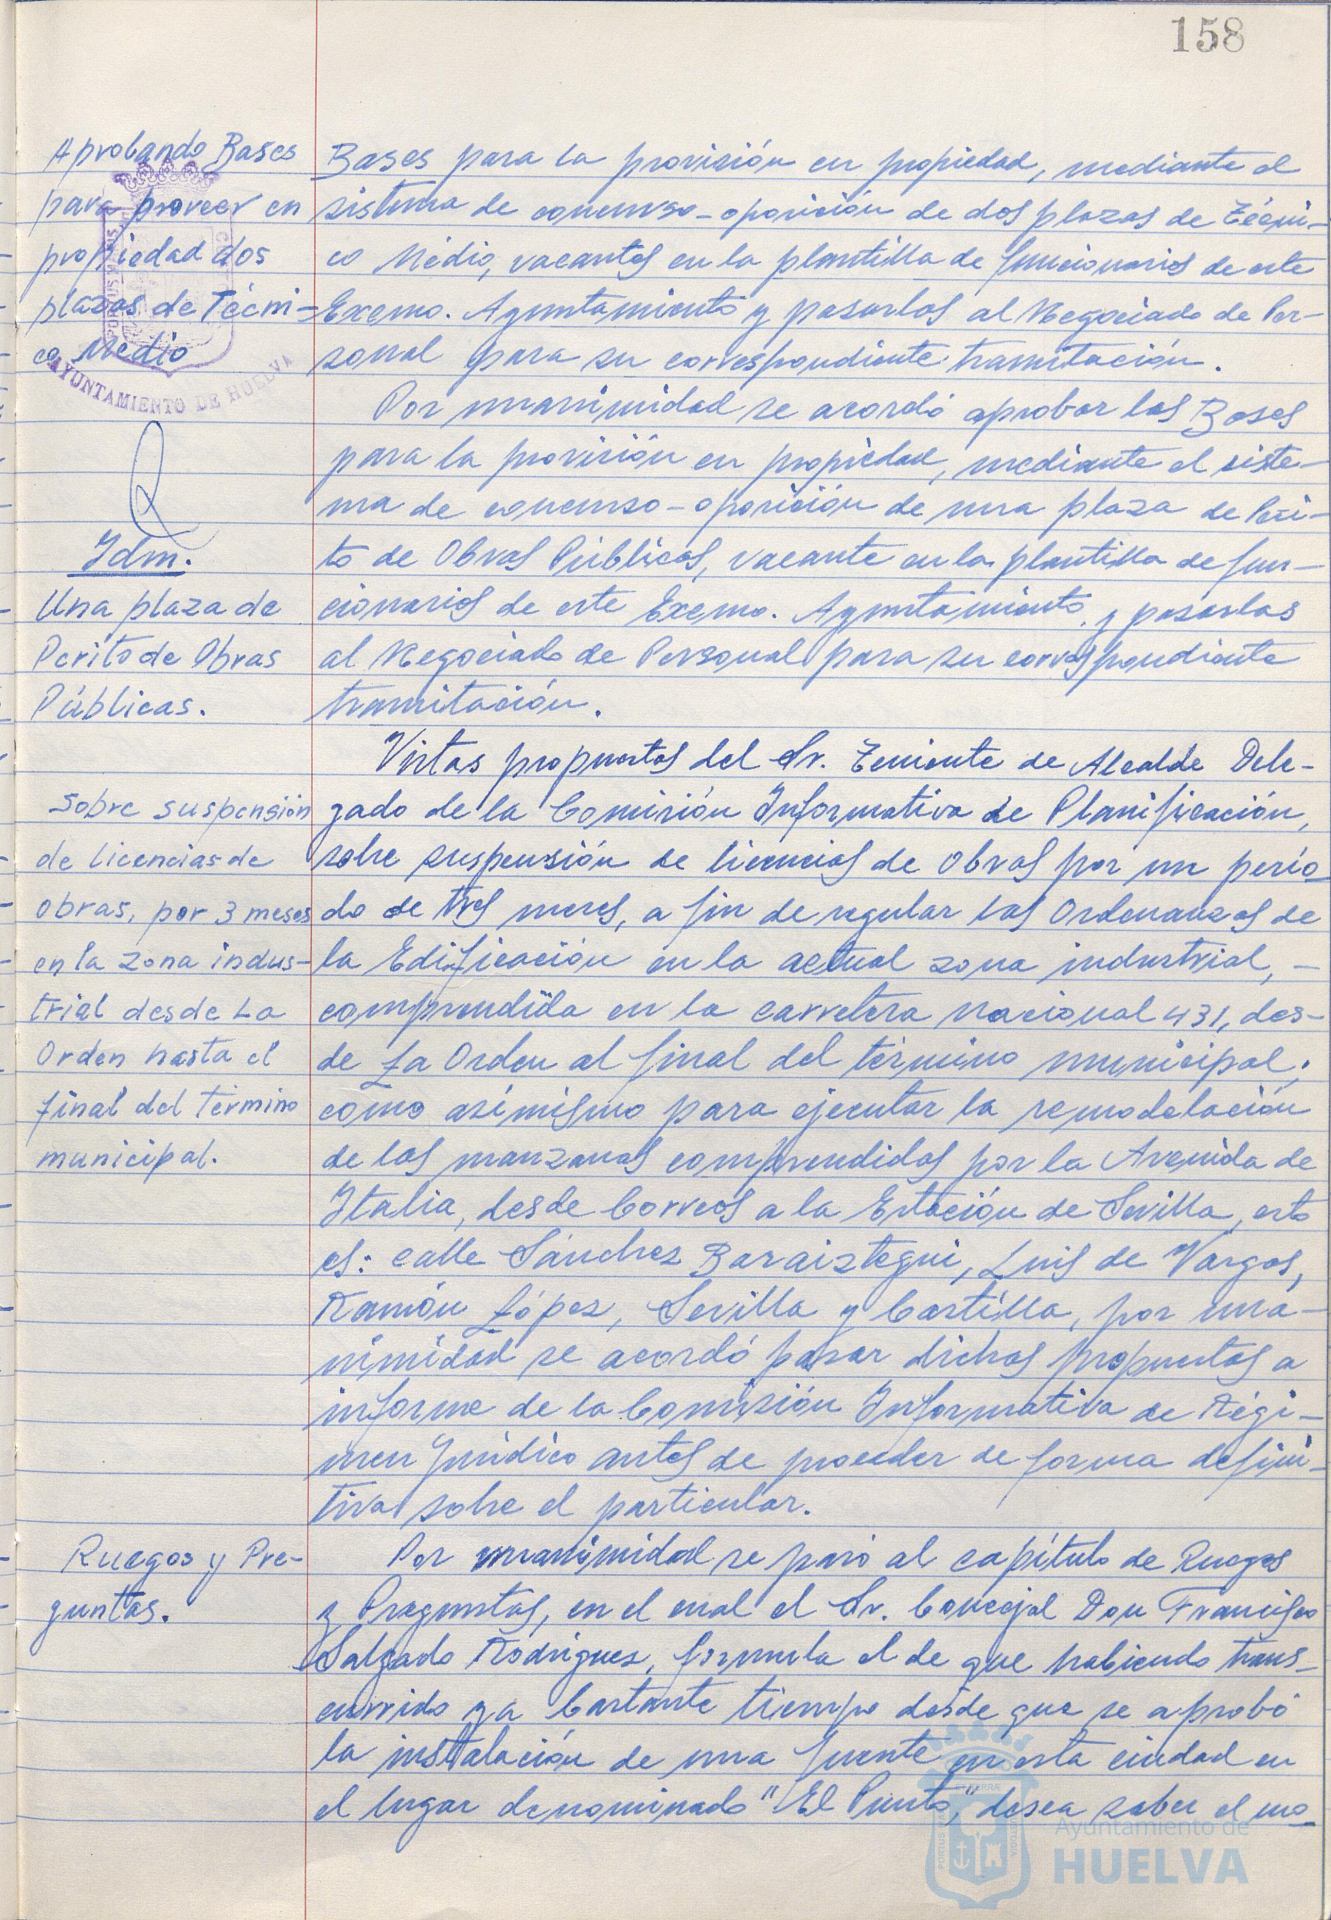 158
Aprobando Bases
para proveer en
propiedad dos
plazas de Técni-
co Medio
AYUNTAMIENTO DE HUELVA
Bases para la provisión en propiedad, mediante el
sistema de concurso-oposición de dos plazas de Técni-
co Medio, vacantes en la plantilla de funcionarios de este
Excmo. Ayuntamiento y pasarlas al Negociado de Per-
sonal para su correspondiente tramitación.
Idm.
Una plaza de
Perito de Obras
Públicas.
Por unanimidad se acordó aprobar las Bases
para la provisión en propiedad, mediante el siste-
ma de concurso-oposición de una plaza de Peri-
to de Obras Públicas, vacante en la plantilla de fun-
cionarios de este Excmo. Ayuntamiento, y pasarlas
al Negociado de Personal para su correspondiente
tramitación.
Sobre suspensión
de licencias de
obras, por 3 meses
en la zona indus-
trial desde La
Orden hasta el
final del término
municipal.
Vistas propuestas del Sr. Teniente de Alcalde Dele-
gado de la Comisión Informativa de Planificación,
sobre suspensión de licencias de obras por un perio
do de tres meses, a fin de regular las Ordenanzas de
la Edificación en la actual zona industrial, -
comprendida en la carretera nacional 431, des-
de La Orden al final del término municipal;
como asimismo para ejecutar la remodelación
de las manzanas comprendidas por la Avenida de
Italia, desde Correos a la Estación de Sevilla, esto
es: calle Sánchez Baraiztegui, Luis de Vargas,
Ramón López, Sevilla y Castilla, por una-
nimidad se acordó pasar dichas propuestas a
informe de la Comisión Informativa de Régi-
men Jurídico antes de proceder de forma defini-
tiva sobre el particular.
Ruegos y Pre-
guntas.
Por unanimidad se pasó al capítulo de Ruegos
y Preguntas, en el cual el Sr. Concejal Don Francisco
Salgado Rodríguez, formula el de que habiendo trans-
currido ya bastante tiempo desde que se aprobó
la instalación de una fuente en esta ciudad en
el lugar denominado "El Punto", desea saber el mo-
Ayuntamiento de
HUELVA